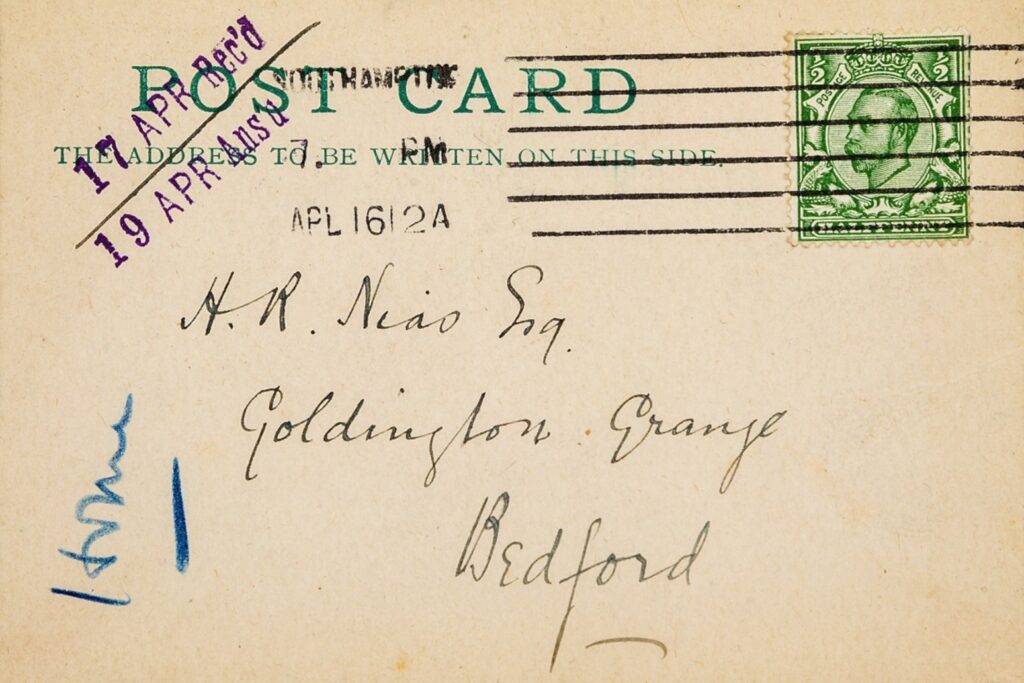 17 APR Rec'd
19 APR Ans'd
POST CARD
THE ADDRESS TO BE WRITTEN ON THIS SIDE.
SOUTHAMPTON
7. PM
APL 16 12 A
½ ½
POSTAGE REVENUE
HALFPENNY
H. R. Nias Esq.
Goldington Grange
Bedford
Home